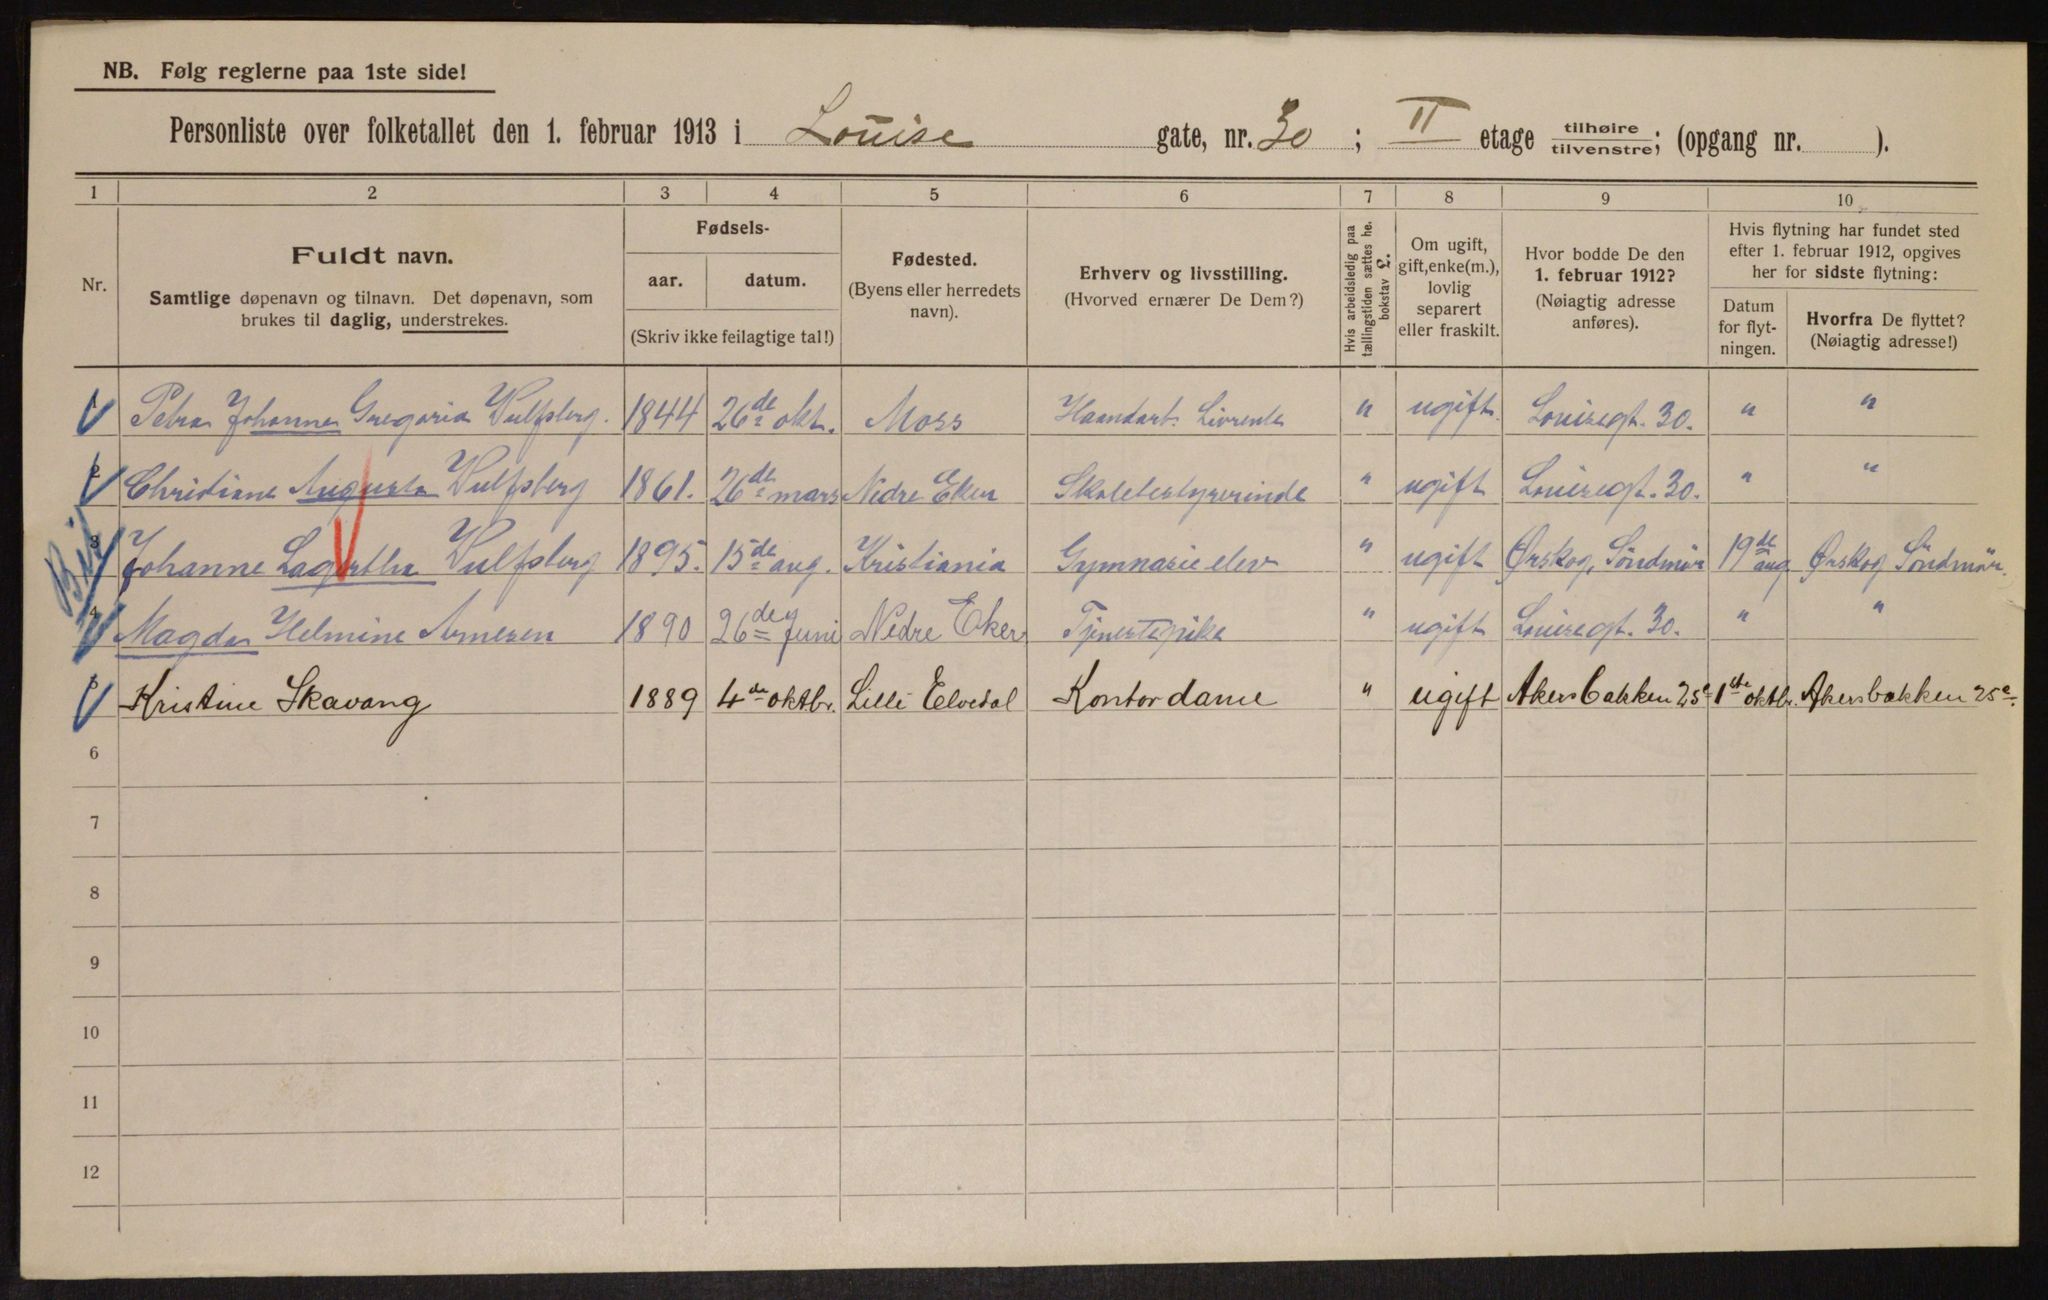 NB. Følg reglerne paa 1ste side!
Personliste over folketallet den 1. februar 1913 i Louise gate, nr. 30; II etage tilhøire tilvenstre; (opgang nr. ).
1 2 3 4 5 6 7 8 9 10
Nr.
Fuldt navn.
Samtlige døpenavn og tilnavn. Det døpenavn, som
brukes til daglig, understrekes.
Fødsels-
aar. datum.
(Skriv ikke feilagtige tal!)
Fødested.
(Byens eller herredets
navn).
Erhverv og livsstilling.
(Hvorved ernærer De Dem?)
Hvis arbeidsledig paa
tællingstiden sættes he.
bokstav L.
Om ugift,
gift, enke(m.),
lovlig
separert
eller fraskilt.
Hvor bodde De den
1. februar 1912?
(Nøiagtig adresse
anføres).
Hvis flytning har fundet sted
efter 1. februar 1912, opgives
her for sidste flytning:
Datum
for flyt-
ningen.
Hvorfra De flyttet?
(Nøiagtig adresse!)
1 Petra Johanne Gregoria Wulfsberg. 1844 26de okt. Moss Haandarb. Livrente " ugift. Louisegt. 30. " "
2 Christiane Augusta Wulfsberg 1861. 26de mars Nedre Eker Skolebestyrerinde " ugift Louisegt. 30. " "
3 Johanne Lagertha Wulfsberg 1895. 15de aug. Kristiania Gymnasieelev " ugift Ørskog, Söndmör 19de aug Ørskog Söndmör.
4 Magda Helmine Arnesen 1890 26de Juni Nedre Eker Tjenestepike " ugift Louisegt. 30. " "
5 Kristine Skavang 1889 4de oktbr. Lille Elvedal Kontordame " ugift Akersbakken 25c 1ste oktbr. Akersbakken 25c.
6
7
8
9
10
11
12